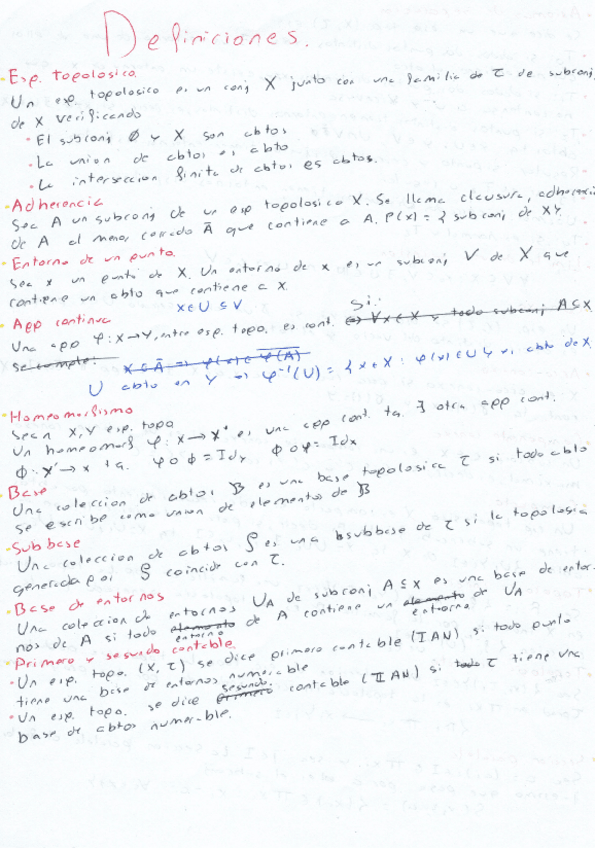 Definiciones.
Esp. topologico
Un esp topologico es un conj X junto con una familia de τ de subconj
de X verificando
· El subconj Ø y X son abtos
· La union de abtos es abto
· La interseccion finita de abtos es abtos.
Adherencia
Sea A un subconj de un esp topologico X. Se llama clausura, adherencia
de A al menor cerrado Ā que contiene a A. P(x) = { subconj de X}.
Entorno de un punto.
Sea x un punto de X. Un entorno de x es un subconj V de X que
contiene un abto que contiene a x.
x∈U⊆V
App continua
Si:
Una app φ: X→Y, entre esp. topo. es cont. ⇔ ∀x∈X y todo subconj A⊆X
se cumple: x∈Ā ⇒ φ(x)∈φ(A)
U abto en Y ⇒ φ⁻¹(U) = { x∈X : φ(x)∈U} es abto de X
Homeomorfismo
Sean X, Y esp. topo
Un homeomorf φ: X→X' es una app cont. tq. ∃ otra app cont.
ϕ: X'→X tq. φ∘ϕ = Idy ϕ∘φ = Idx
Base
Una coleccion de abtos B es una base topologica τ si todo abto
se escribe como union de elementos de B
Subbase
Una coleccion de abtos S es una bsubbase de τ si la topologia
generada por S coincide con τ.
Base de entornos
Una coleccion de entornos UA de subconj A⊆X es una base de entor-
nos de A si todo elemento entorno de A contiene un elemento entorno de UA
Primero y segundo contable
· Un esp. topo. (X, τ) se dice primero contable (IAN) si todo punto
tiene una base de entornos numerable
· Un esp. topo. se dice primero segundo contable (IIAN) si todo τ tiene una
base de abtos numerable.